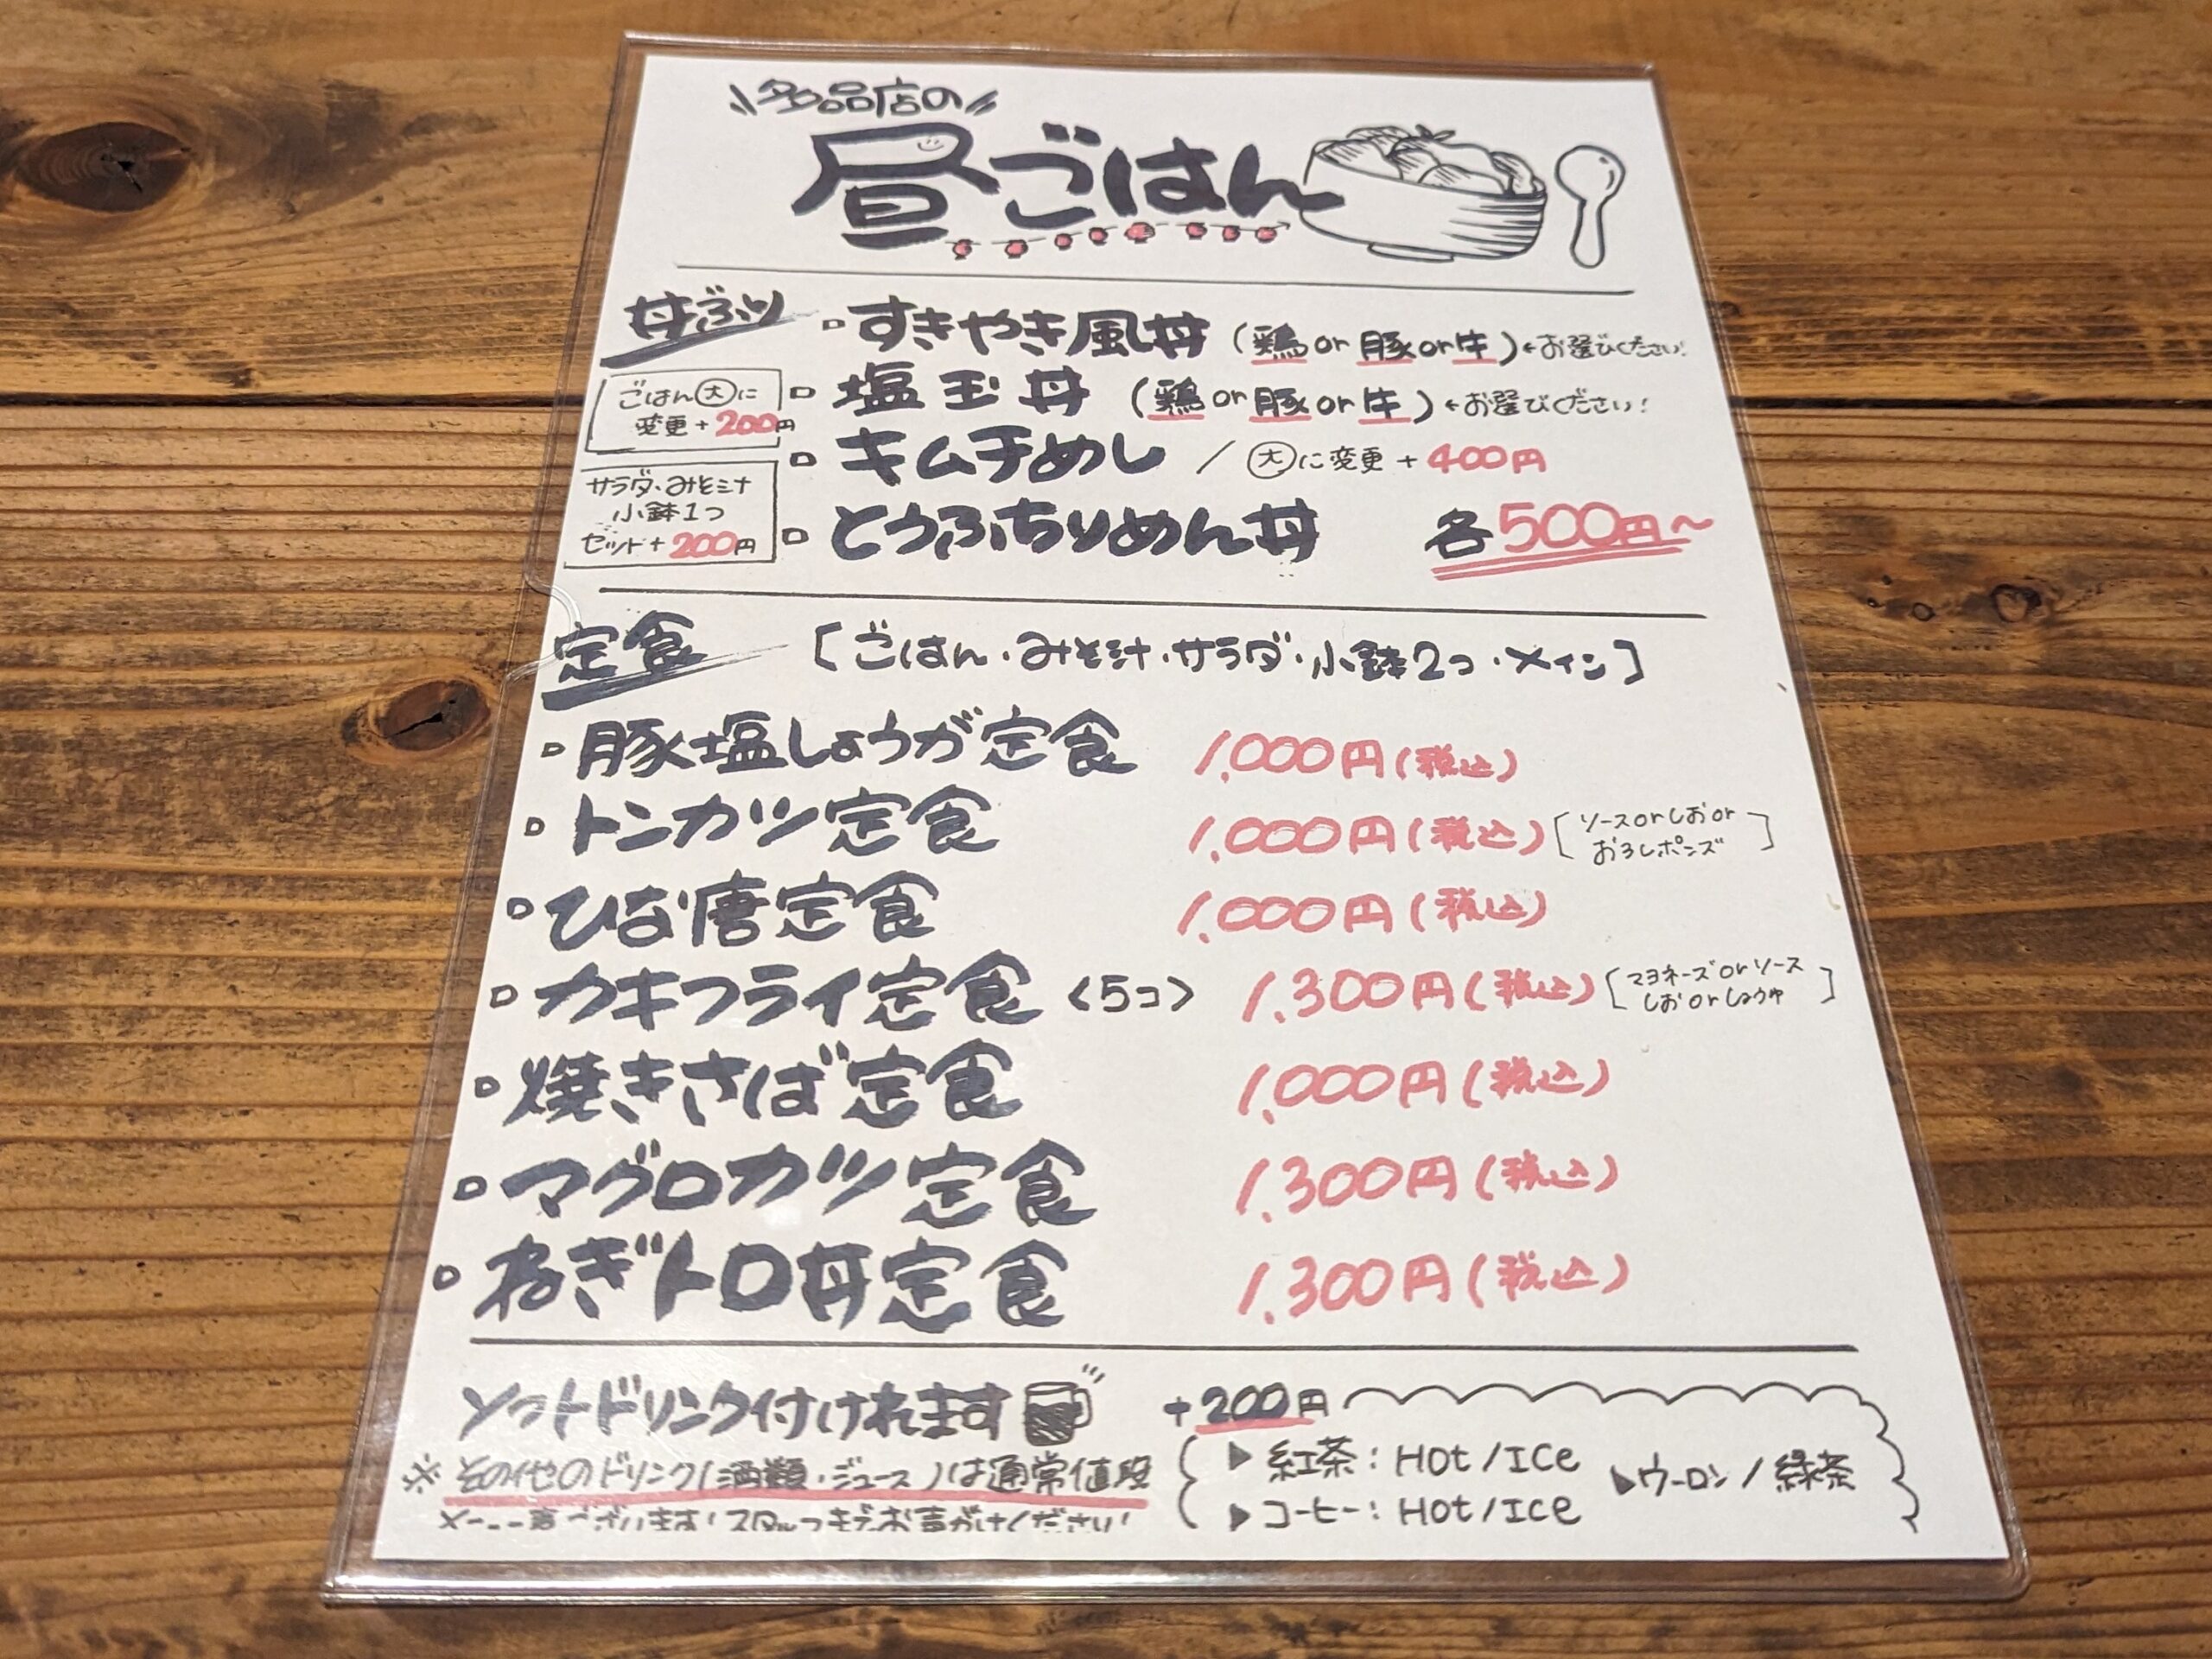 多品店の
昼ごはん
丼ぶり
すきやき風丼 (鶏or豚or牛)←お選びください!
ごはん大に
変更+200円
塩玉丼 (鶏or豚or牛)←お選びください!
キムチめし / 大に変更+400円
サラダ・みそ汁
小鉢1つ
セット+200円
とうふちりめん丼 各500円〜
定食 [ごはん・みそ汁・サラダ・小鉢2つ・メイン]
豚塩しょうが定食 1,000円(税込)
トンカツ定食 1,000円(税込) [ソースorしおor
おろしポンズ]
ひな唐定食 1,000円(税込)
カキフライ定食 <5コ> 1,300円(税込) [マヨネーズorソース
しおorしょうゆ]
焼きさば定食 1,000円(税込)
マグロカツ定食 1,300円(税込)
ねぎトロ丼定食 1,300円(税込)
ソフトドリンク付けれます +200円
※その他のドリンク(酒類・ジュース)は通常値段
ございます!スタッフまでお声がけください!
▶紅茶:HOt/ICe ▶ウーロン/緑茶
▶コーヒー:HOt/ICe